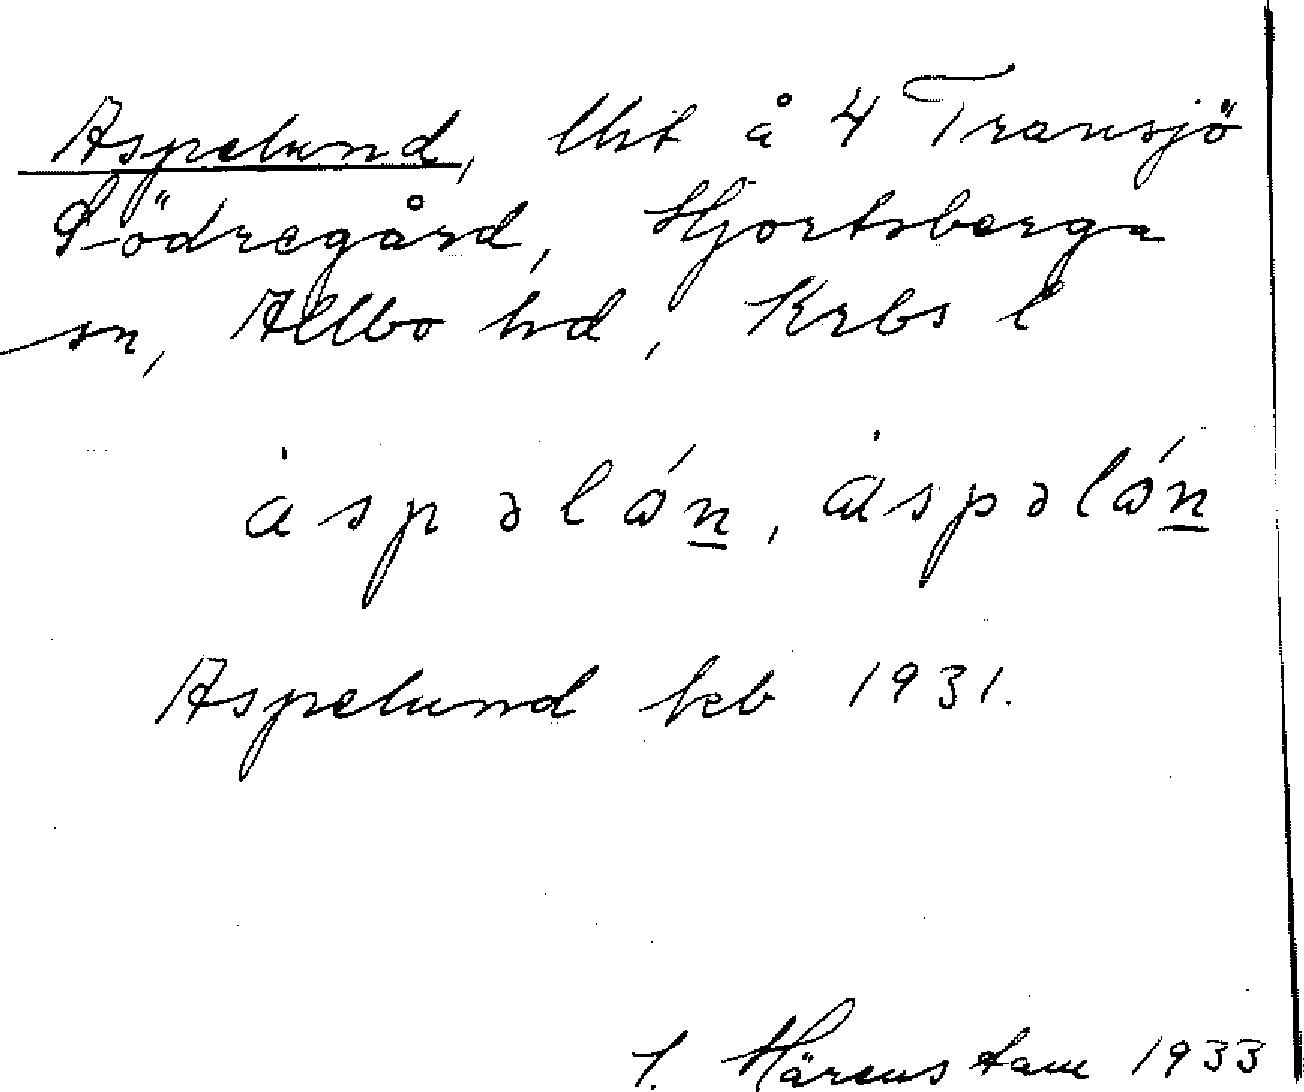 Aspelund, lht å 4 Transjö
Södregård, Hjortsberga
sn, Allbo hd, Krbs l
àspəlón, àspəlón
Aspelund kb 1931.
I. Härenstam 1933